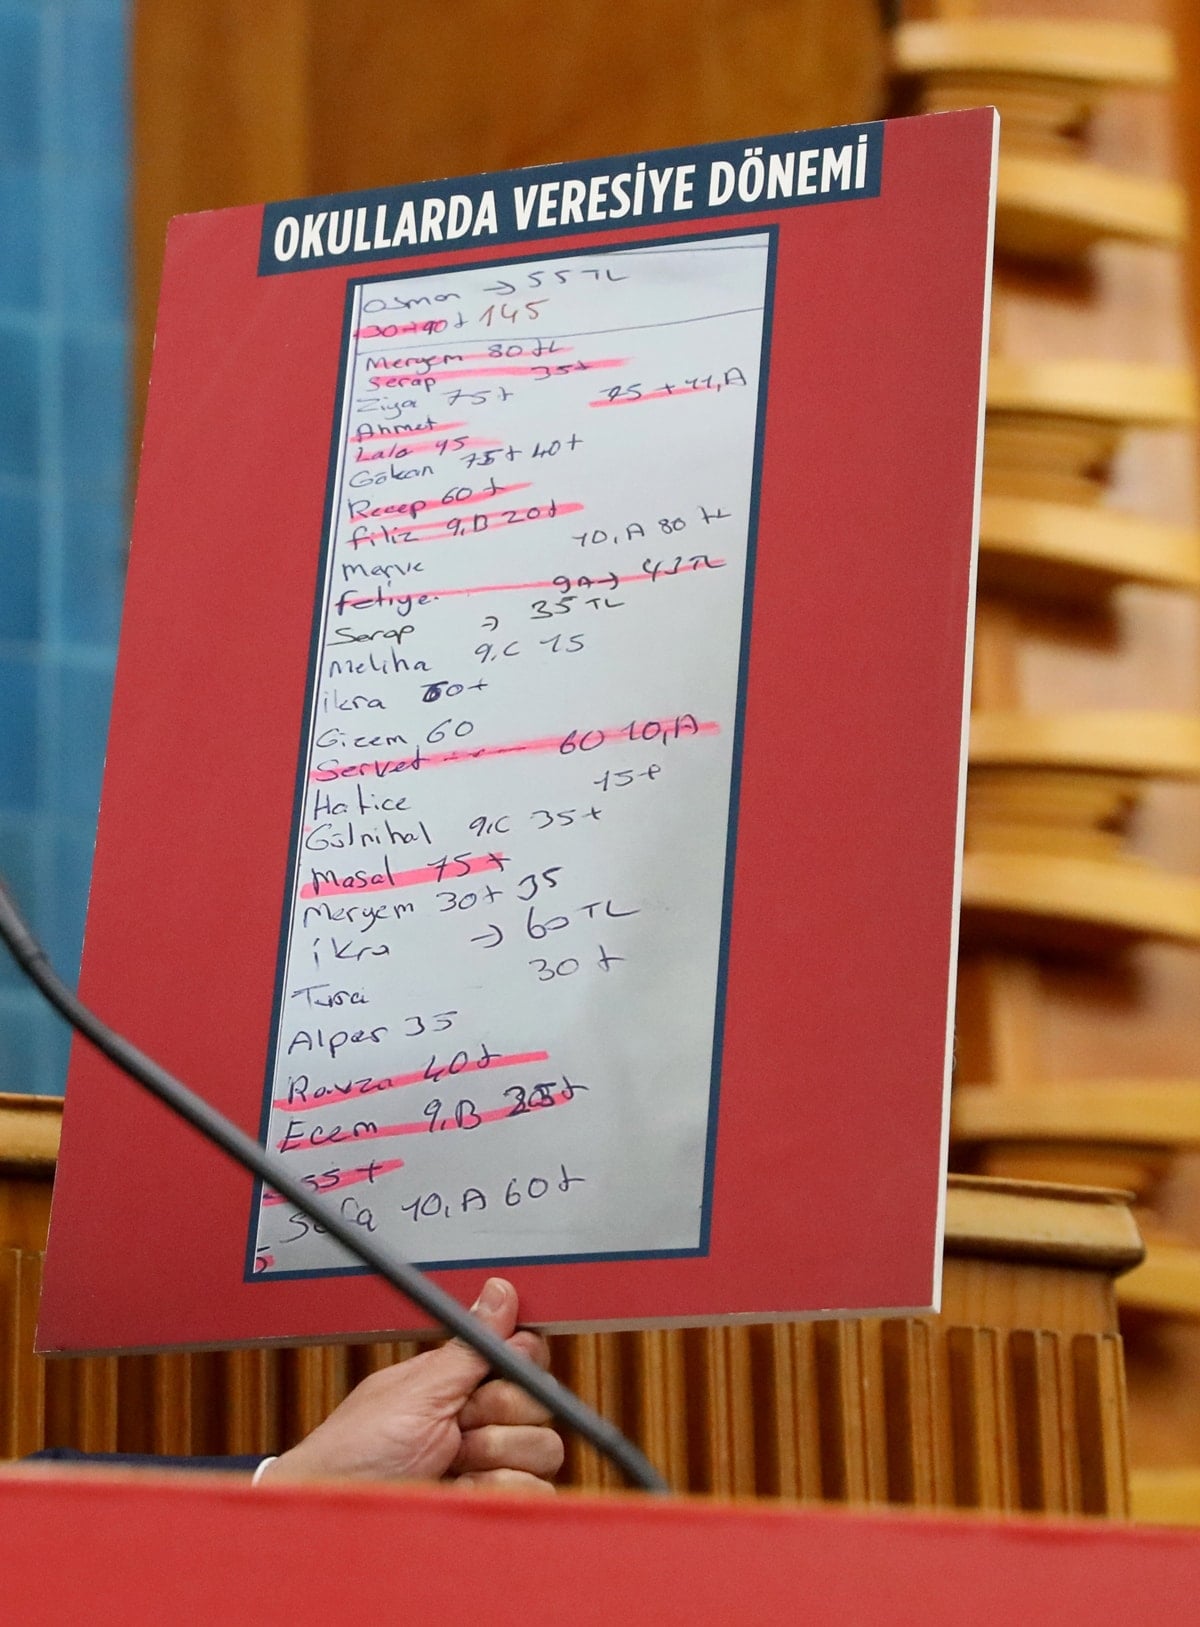 OKULLARDA VERESİYE DÖNEMİ
Osman → 55 TL
30+90+ 145
Meryem 80 TL
Serap 35t
Ziya 75t
75 + 11,A
Ahmet
Lala 45
Gökan 75t 40t
Recep 60 t
filiz 9,B 20t
Merve 10,A 80 tL
fetiye. 9A→ 43TL
Serap → 35 TL
Meliha 9,C 15
ikra 60t
Gizem 60
Servet ---- 60 10,A
Hatice 15t
Gülnihal 9,C 35t
Masal 75 t
Meryem 30t 35
ikra → 60 TL
30 t
Alper 35
Ravza 40t
Ecem 9,B
55 t
Sefa 10,A 60t
5